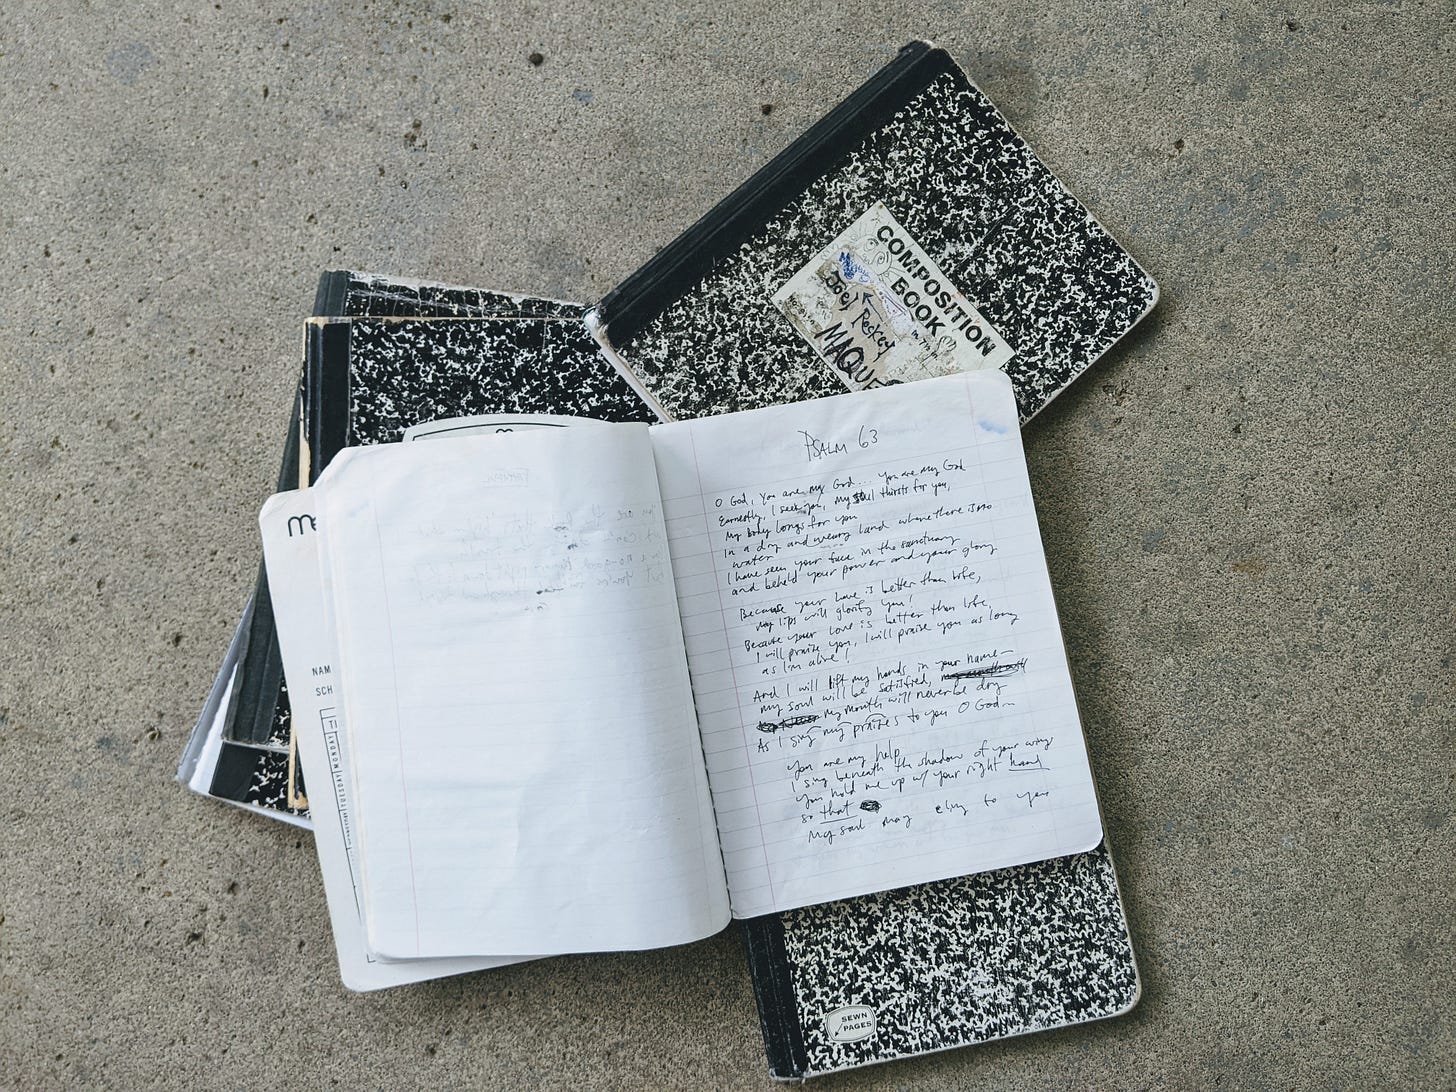 COMPOSITION
BOOK
Joey
MAQUE
PSALM 63
O God, you are my God... you are my God
Earnestly, I seek you, my soul thirsts for you,
My body longs for you
In a dry and weary land where there is no
water
I have seen your face in the sanctuary
and beheld your power and your glory
Because your Love is better than life,
my lips will glorify you!
Because your Love is better than life,
I will praise you, I will praise you as long
as I'm alive!
And I will lift my hands in your name—
my soul will be satisfied,
my mouth will never be dry
As I sing my praises to you O God—
You are my help
I sing beneath the shadow of your wing
You hold me up w/ your right hand
so that
My soul may cling to you
me
NAM
SCH
TI
MONDAY
TUESDAY
SEWN
PAGES